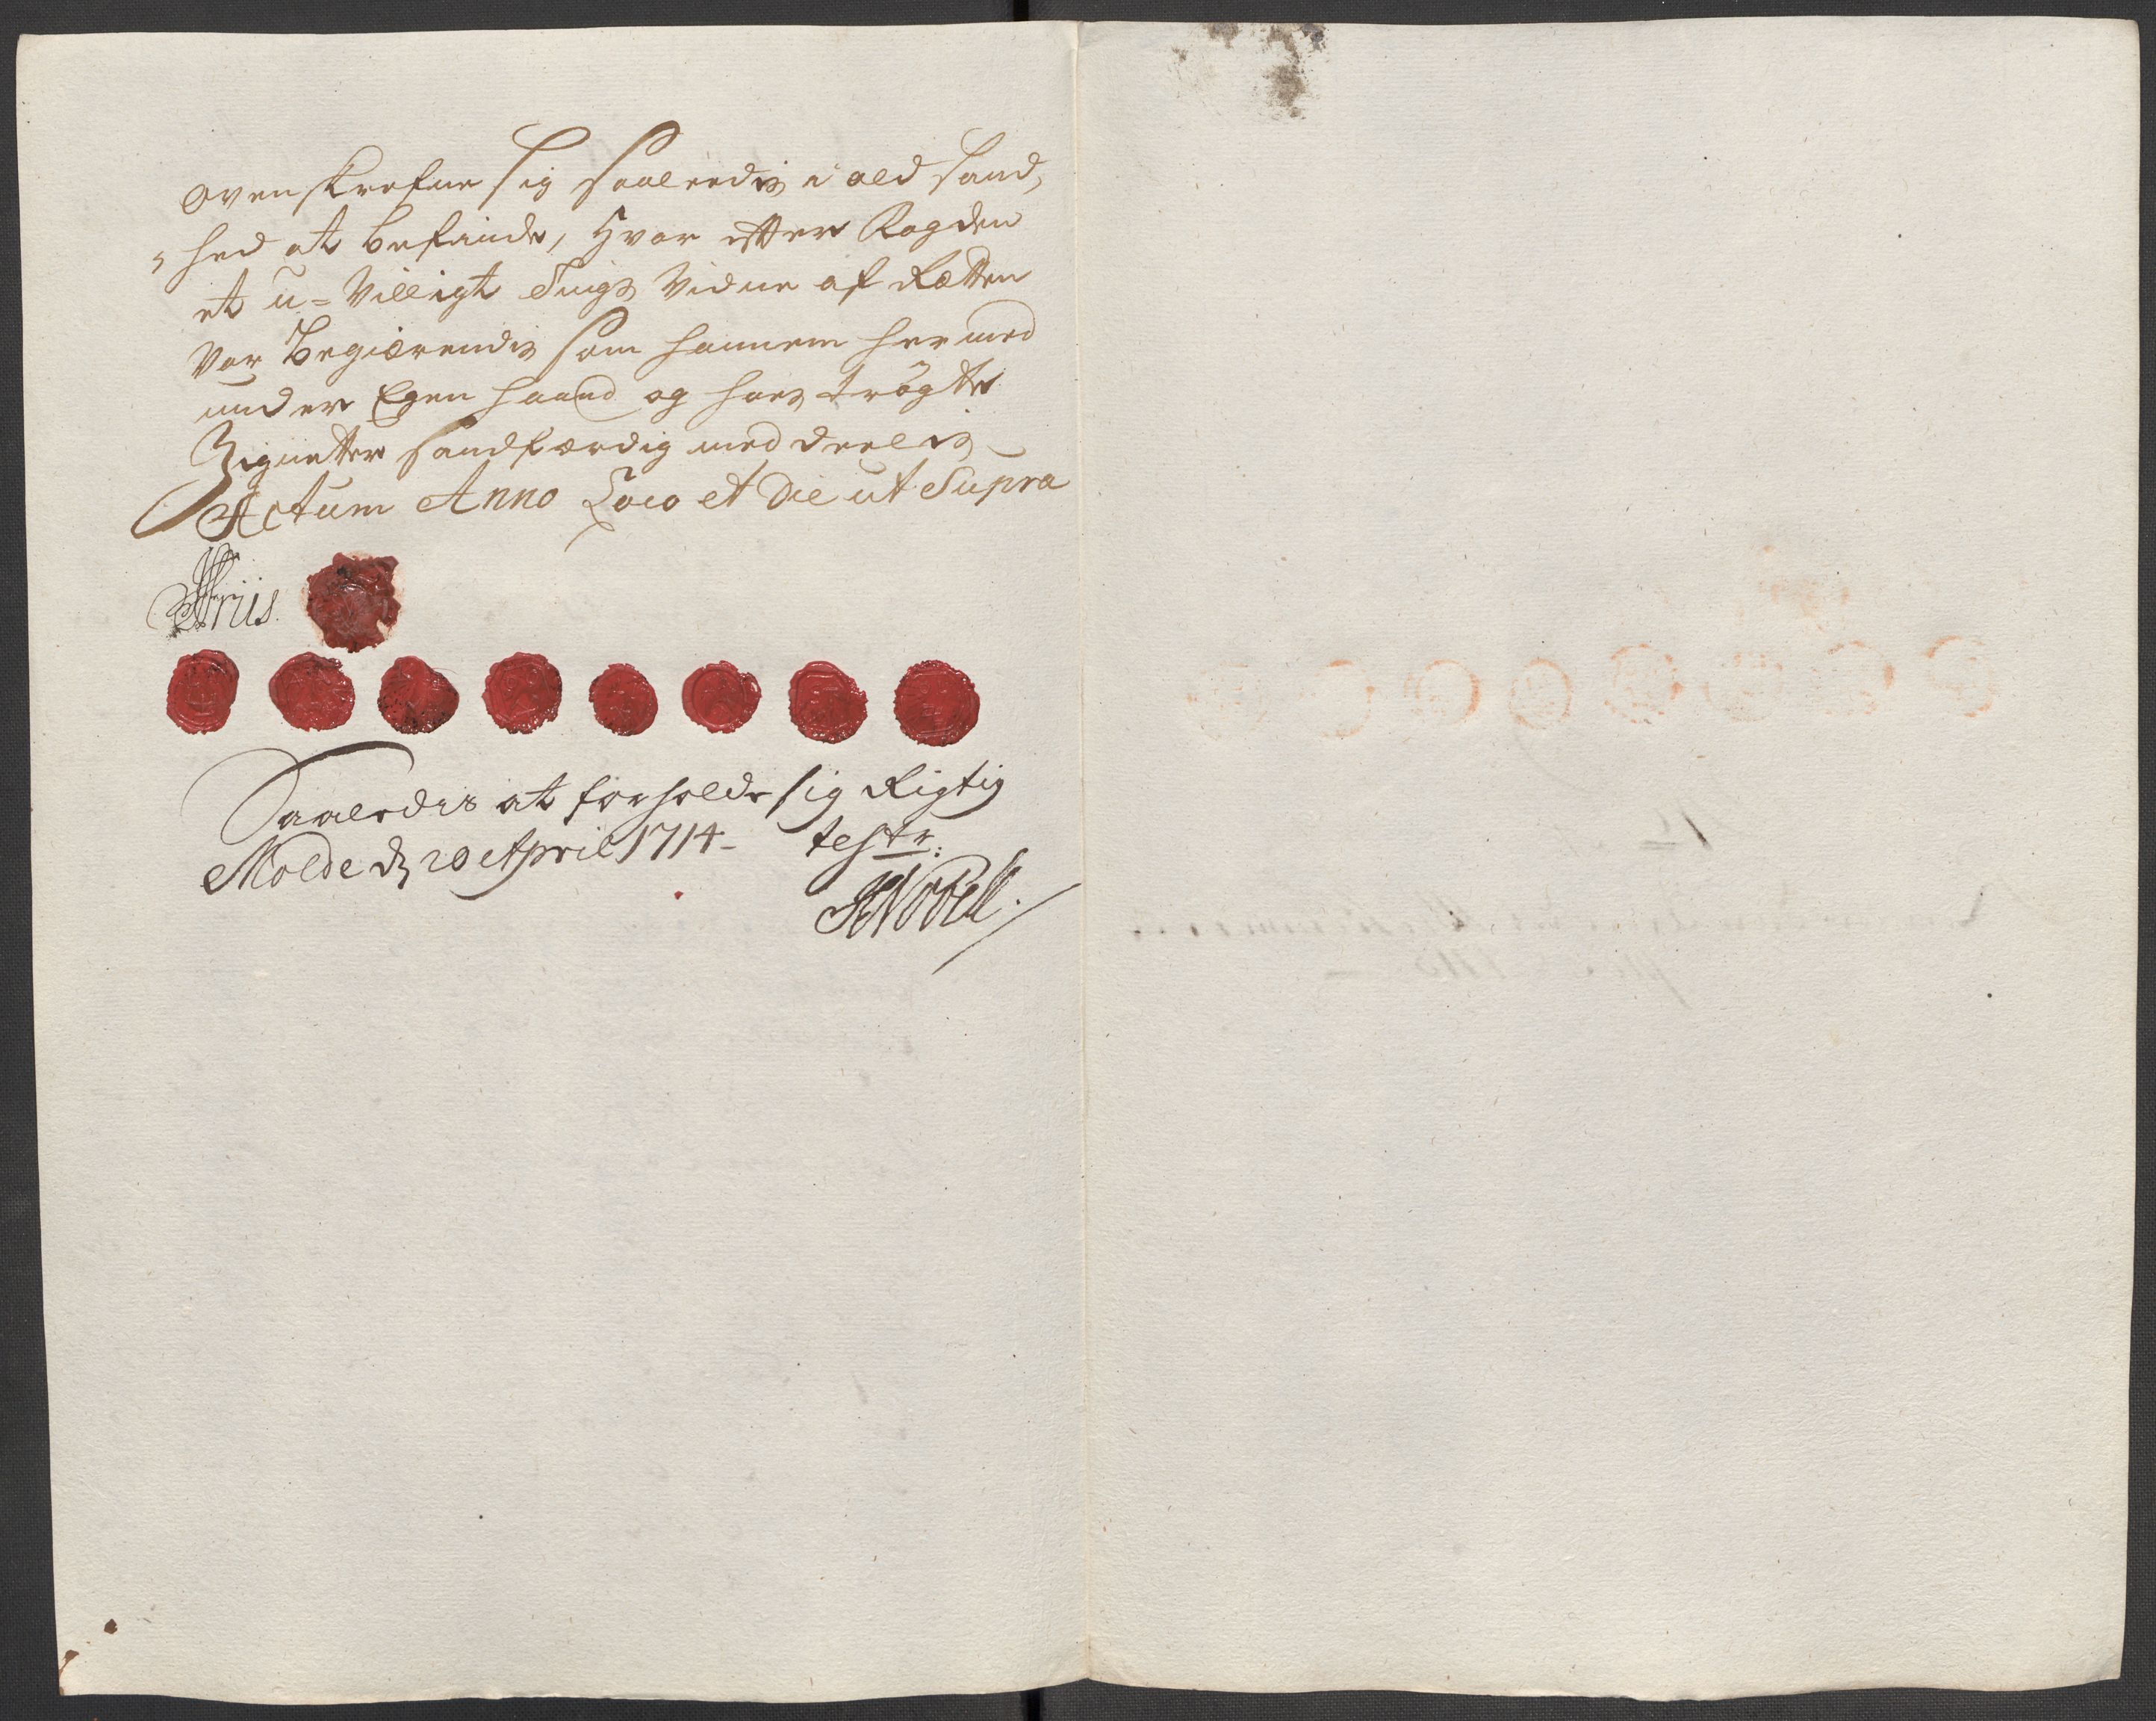 ovenskrefne sig saaleedis i ald Sand,
hed at befinde, Hvor etter Fogden
et u=Villigt Tings Vidne af Rætten
Var Begiærendis som hannem her med
under Egen haand og hos trögte
Zignetter Sandfærdig med deelis
Actum Anno Loco et Die ut Supra
Friis
Saaledis at forholde sig Rigtig
Molde d. 20 April 1714 - testr: